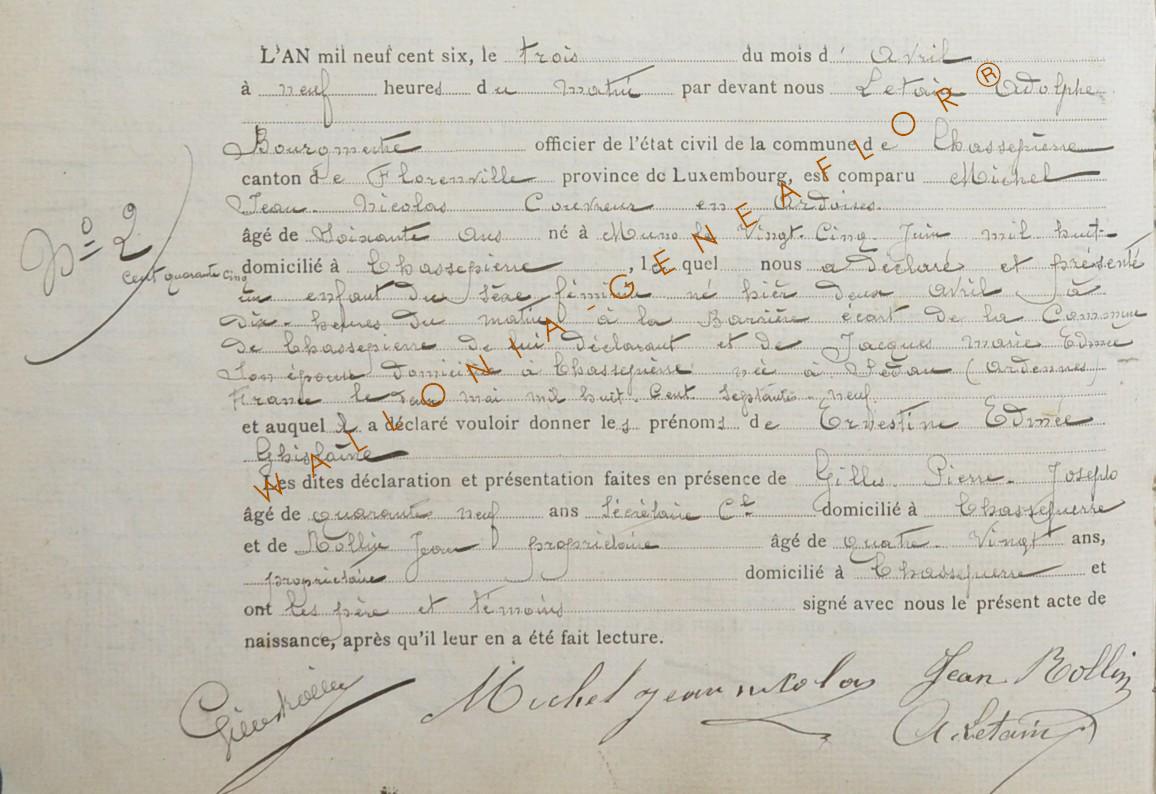 L'AN mil neuf cent six, le trois du mois d' Avril
à neuf heures du matin par devant nous Letain Adolphe
Bourgmestre officier de l'état civil de la commune de Chassepierre
canton de Florenville province de Luxembourg, est comparu Michel
Jean Nicolas Couvreur en Ardoises.
âgé de Soixante ans né à Muno le Vingt-Cinq Juin mil huit-
N° 2
cent quarante cinq domicilié à Chassepierre, lequel nous a déclaré et présenté
un enfant du sexe féminin né hier deux avril à
dix heures du matin à la Barrière écart de la Commune
de Chassepierre de lui déclarant et de Jacques Marie Edmée
son épouse domiciliée à Chassepierre née à Sedan (Ardennes)
France le mai mil huit Cent septante-neuf.
et auquel il a déclaré vouloir donner les prénoms de Ernestine Edmée
Ghislaine
Les dites déclaration et présentation faites en présence de Gillet Pierre Joseph
âgé de quarante neuf ans Secrétaire Cal domicilié à Chassepierre
et de Rollin Jean propriétaire âgé de quatre-Vingt ans,
propriétaire domicilié à Chassepierre et
ont les père et témoins signé avec nous le présent acte de
naissance, après qu'il leur en a été fait lecture.
Michel jean nicolas Jean Rollin
A. Letain
WALLONIA-GENEAFLOR®